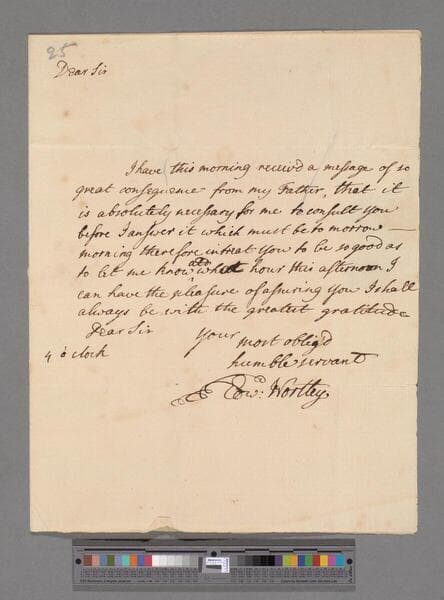 25
Dear Sir
I have this morning receiv'd a message of so
great consequence from my Father, that it
is absolutely necessary for me to consult you
before I answer it which must be to morrow
morning therefore intreat you to be so good as
to let me know att what hour this afternoon I
can have the pleasure of assuring you I shall
always be with the greatest gratitude
Dear Sir
your most oblig'd
humble servant
4 o clock
Edwd: Wortley